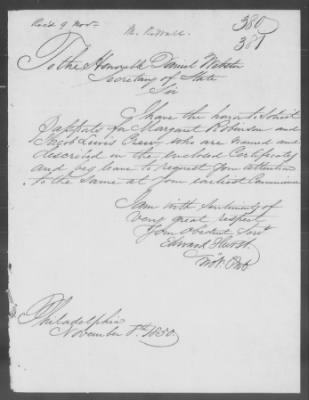 Rec'd 9 Novr
380
381
To the Honorable Daniel Webster
Secretary of State
Sir
I have the honor to solicit
passports for Margaret Robinson and
Jacob Lewis who are named and
described in the enclosed Certificates
and beg leave to request your attention
to the same at your earliest Convenience
I am with sentiments of
very great respect
Your Obedient Servt
Edward Hurst
Not. Pub
Philadelphia
November 8th 1850.